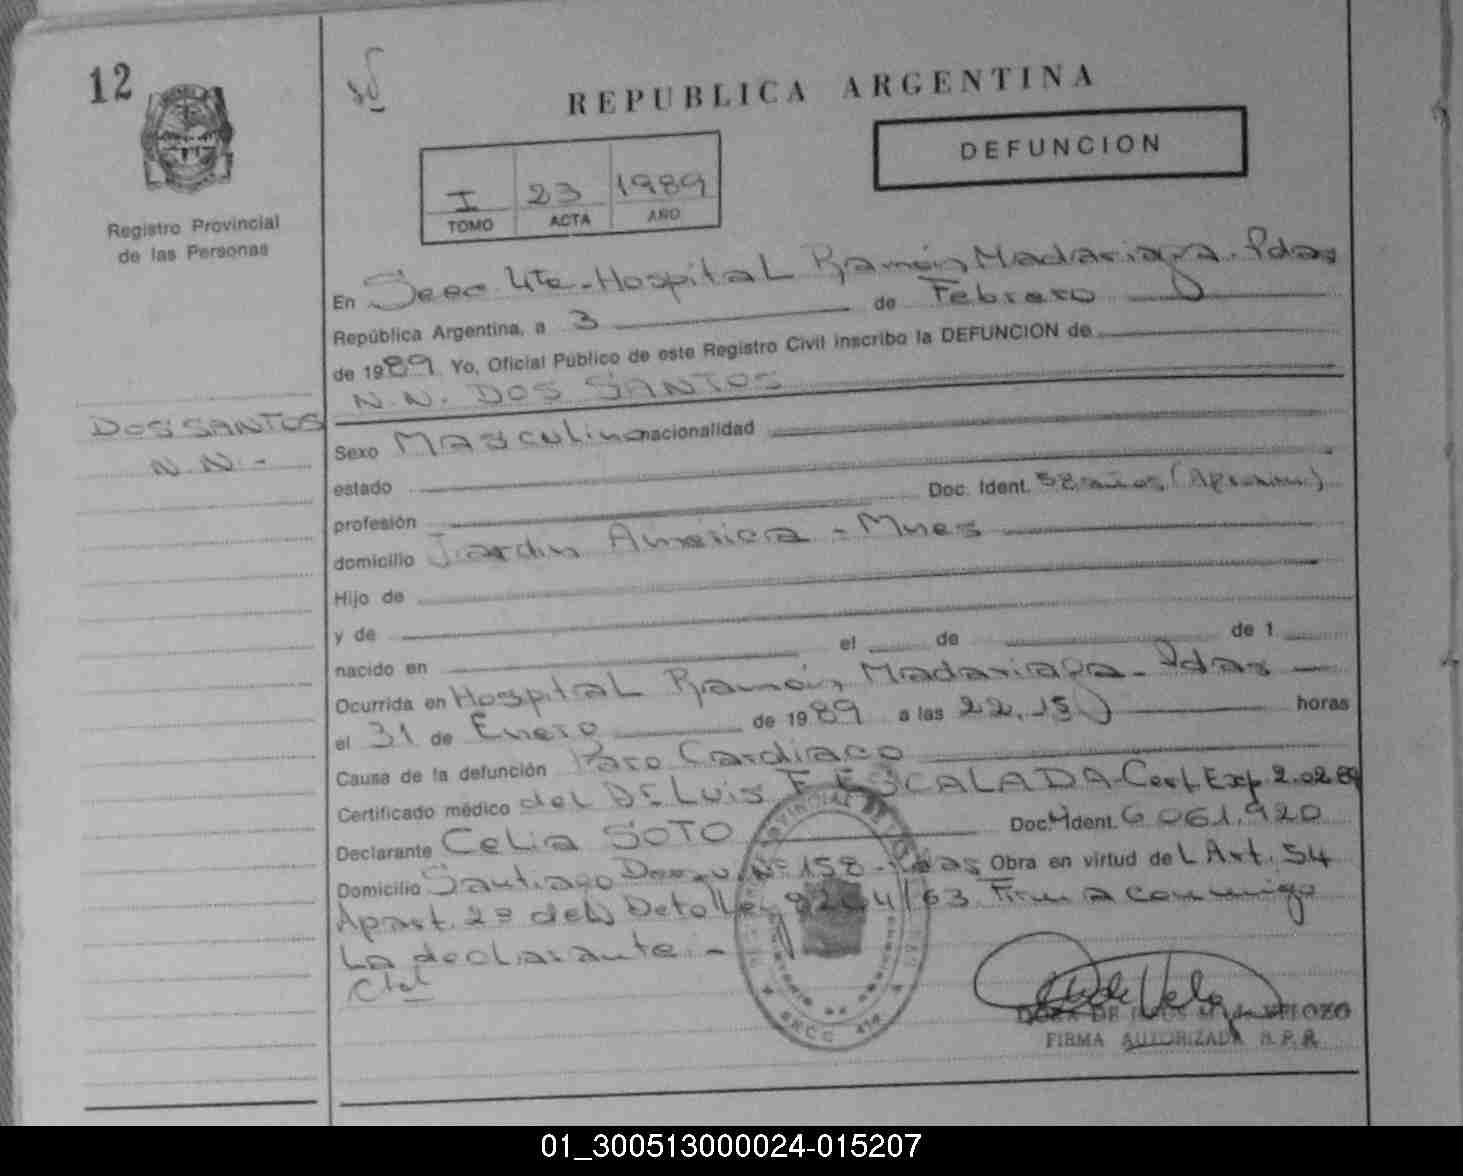 12
REPUBLICA ARGENTINA
DEFUNCION
I 23 1989
TOMO ACTA AÑO
Registro Provincial
de las Personas
En Secc 4ta - Hospital Ramón Madariaga - Pdas
República Argentina, a 3 de Febrero
de 1989 Yo, Oficial Público de este Registro Civil inscribo la DEFUNCION de
N.N. DOS SANTOS
DOS SANTOS
N.N.-
Sexo Masculino nacionalidad
estado
profesión Doc. Ident. 58 años (Aproxim.)
domicilio Jardín América - Mnes
Hijo de
y de
nacido en el de de 1
Ocurrida en Hospital Ramón Madariaga - Pdas
el 31 de Enero de 1989 a las 22,15 horas
Causa de la defunción Paro Cardíaco
Certificado médico del Dr Luis F ESCALADA - Cert. Exp 2.02.89
Declarante Celia SOTO Doc. Ident. 6.061.920
Domicilio Santiago Nº 158 - Pdas Obra en virtud del Art. 54
Apart. 2º del Dto Ley 8204/63. Firma conmigo
La declarante.-
FIRMA AUTORIZADA R.P.P.
01_300513000024-015207